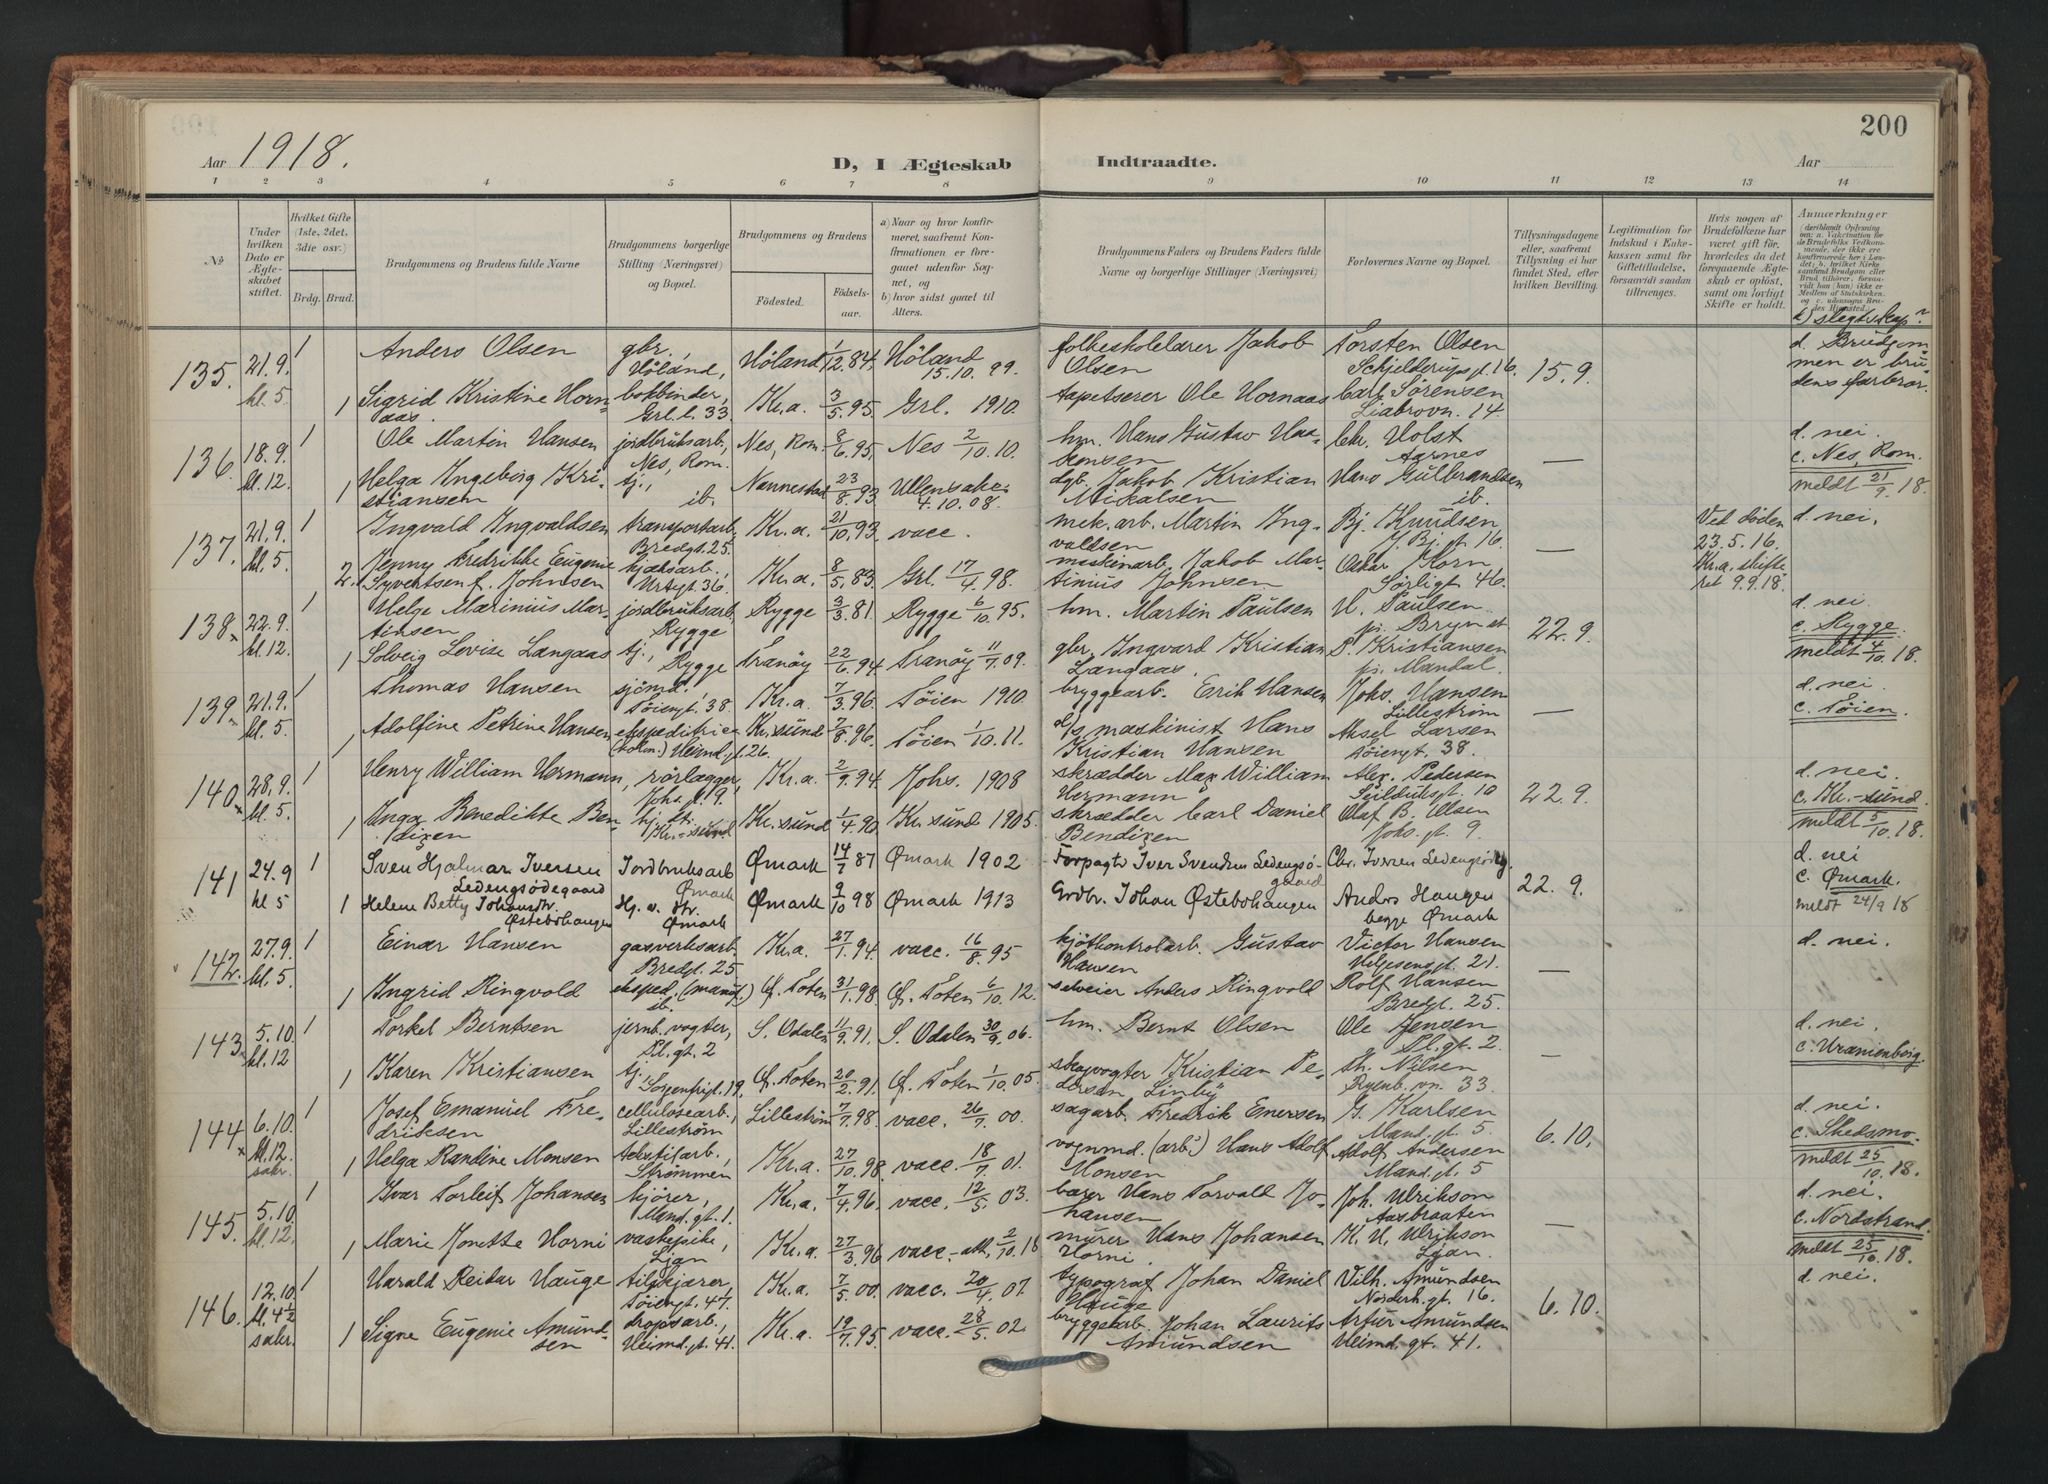 Aar 1918.
D, I Ægteskab
Indtraadte.
Aar
200
1 2 3 4 5 6 7 8 9 10 11 12 13 14
No
Under hvilken Dato er Ægteskabet stiftet.
Hvilket Gifte (1ste, 2det, 3die osv.)
Brdg. Brud.
Brudgommens og Brudens fulde Navne
Brudgommens borgerlige Stilling (Næringsvei) og Bopæl.
Brudgommens og Brudens
Fødested.
Fødselsaar.
a) Naar og hvor konfirmeret, saafremt Konfirmationen er foregaaet udenfor Sognet, og
b) hvor sidst gaaet til Alters.
Brudgommens Faders og Brudens Faders fulde Navne og borgerlige Stillinger (Næringsvei)
Forlovernes Navne og Bopæl.
Tillysningsdagene eller, saafremt Tillysning ei har fundet Sted, efter hvilken Bevilling.
Legitimation for Indskud i Enkekassen samt for Giftetilladelse, forsaavidt saadan tiltrænges.
Hvis nogen af Brudefolkene har været gift før, hvorledes da det foregaaende Ægteskab er opløst, samt om lovligt Skifte er holdt.
Anmærkninger
135. 21.9. kl. 5. 1 Anders Olsen gbr., Høland, Høland 1/12.84. Høland 15.10.99. folkeskolelærer Jakob Olsen Torsten Olsen Schjelderups gt. 16. 15.9. d. Brudgommen er brudens farbror.
1 Sigrid Kristine Hornaas bokbinder, Grl. l. 33. Kr.a. 3/5.95. Grl. 1910. tapetserer Ole Hornaas Carl Sørensen Liabrovn. 14.
136. 18.9. kl. 12. 1 Ole Martin Hansen jordbruksarb., Nes, Rom. Nes, Rom. 8/6.95. Nes 2/10.10. hm. Hans Gustav Haakonsen Chr. Holst Aarnes — d. nei. c. Nes, Rom. meldt 21/9.18.
1 Helga Ingeborg Kristiansen tj., ib. Nannestad 23/8.93. Ullensaker 4.10.08. dgb. Jakob Kristian Mickalsen Hans Gulbrandsen ib.
137. 21.9. kl. 5. 1 Ingvald Ingvaldsen transportarb. Bredgt. 25. Kr.a. 21/10.93. vacc. mek. arb. Martin Ingvaldsen Bj. Knudsen, J. Bj. gt. 16. — Ved døden 23.5.16. Kr.a. skifteret 9.9.18. d. nei.
2. Jenny Fredrikke Eugenie Syvertsen f. Johnsen kjeksarb., Urtegt. 36. Kr.a. 8/5.83. Grl. 17/4.98. maskinarb. Jakob Martinius Johnsen Oskar Korn Sørligt. 46.
138. 22.9. kl. 12. 1 Helge Marinius Martinsen jordbruksarb. Rygge Rygge 3/3.81. Rygge 6/10.95. hm. Martin Paulsen H. Paulsen 22.9. d. nei. c. Rygge. meldt 4/10.18.
1 Solveig Lovise Langaas tj., Rygge Tranøy 22/6.94. Tranøy 11/7.09. gbr. Ingvard Kristian Langaas. P. Kristiansen pr. Mandal.
139. 21.9. kl. 5. 1 Thomas Hansen sjømd. Tøiengt. 38. Kr.a. 7/3.96. Tøien 1910. bryggearb. Erik Hansen Johs. Hansen Lillestrøm — d. nei. c. Tøien.
1 Adolfine Petrine Hansen ekspeditrice Heimd. gt. 26. Kr.sund 7/8.96. Tøien 1/10.11. d/s maskinist Hans Kristian Hansen Aksel Larsen Tøiengt. 38.
140. 28.9. kl. 5. 1 Henry William Hermann, rørlægger, Johs. gt. 9. Kr.a. 2/9.94. Johs. 1908 skrædder Max William Hermann Alex. Pedersen Seilduksgt. 10 22.9. d. nei. c. Kr.-sund. meldt 5/10.18.
1 Inga Benedikte Bendixen hj. dt. Kr.sund Kr.sund 1/4.90. Kr.sund 1905. skrædder Carl Daniel Bendixen Olaf B. Olsen Johs. gt. 9.
141 24.9 kl 5 1 Sven Hjalmar Iversen Ledengsødegaard Jordbruksarb Ømark Ømark 14/7 87 Ømark 1902 Forpagtr Iver Svendsen Ledengsødegaard Chr. Iversen Ledengsødeg. 22.9. d. nei c. Ømark. meldt 24/9 18
1 Helene Betty Johansdtr. Østebøhaugen Hj. v. str. Ømark Ømark 9/10 98 Ømark 1913 Grdbr. Johan Østebøhaugen Anders Haugen begge Ømark
142. 27.9. kl. 5. 1 Einar Hansen gasverksarb. Bredgt. 25 Kr.a. 27/1.94. vacc. 16/8.95 kjøtkontrolarb. Gustav Hansen Victor Hansen Helgesensgt. 21. — d. nei.
1 Ingrid Ringvold eksped. (manuf.) ib. Ø. Toten 31/1.98. Ø. Toten 6/10.12. selveier Anders Ringvold Rolf Hansen Bredgt. 25.
143. 5.10. kl. 12 1 Torkel Berntsen jernb. vogter, Pl. gt. 2 S. Odalen 11/9.91. S. Odalen 30/9.06. hm. Bernt Olsen Ole Jensen Pl. gt. 2. — d. nei. c. Uranienborg.
1 Karen Kristiansen tj., Sorgenfrigt. 19. Ø. Toten 20/2.91. Ø. Toten 1/10.05. skogvogter Kristian Pedersen Linby Th. Nilsen Ryenb. vn. 33.
144. 6.10. kl. 12. sakr. 1 Josef Emanuel Fredriksen cellulosearb., Lillestrøm Lillestrøm 7/7.98. vacc. 26/7.00. sagarb. Fredrik Emersen G. Karlsen Mand. gt. 5. 6.10. d. nei. c. Skedsmo. meldt 25/10.18.
1 Helga Randine Monsen tekstilarb., Strømmen Kr.a. 27/10.98. vacc. 18/7.01. vognmd. (arb.) Hans Adolf Monsen Adolf Andersen Mand. gt. 5
145. 5.10. kl. 12. 1 Ivar Torleif Johansen kjører, Mand. gt. 1. Kr.a. 7/4.96. vacc. 12/5.03. bærer Hans Torvald Johansen Joh. Ulrikson Aasbraaten — d. nei. c. Nordstrand. meldt 25/10.18.
1 Marie Jonette Horni vaskepike, Ljan Kr.a. 27/3.96. vacc.-att. 2/10.18 murer Hans Johansen Horni. K. H. Ulrikson Ljan.
146. 12.10. kl. 4½ sakr. 1 Harald Reidar Hauge tilskjærer, Tøiengt. 47. Kr.a. 7/5.00. vacc. 20/4.07. typograf Johan Daniel Hauge Vilh. Amundsen Norderh. gt. 16. 6.10. d. nei.
1 Signe Eugenie Amundsen dropsarb., Heimd. gt. 41. Kr.a. 19/7.95. vacc. 28/5.02. bryggearb. Johan Laurits Amundsen Artur Amundsen Heimd. gt. 41.